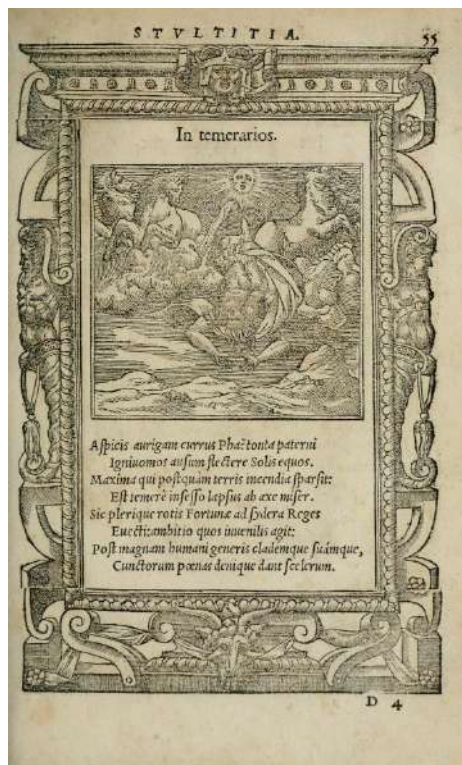 STVLTITIA. 55
In temerarios.
Aspicis aurigam currus Phaëtonta paterni
Igniuomos ausum flectere Solis equos.
Maxima qui postquam terris incendia sparsit:
Est temerè insesso lapsus ab axe miser.
Sic plerique rotis Fortunæ ad sydera Reges
Euecti: ambitio quos iuuenilis agit:
Post magnam humani generis clademque suámque,
Cunctorum pœnas denique dant scelerum.
D 4